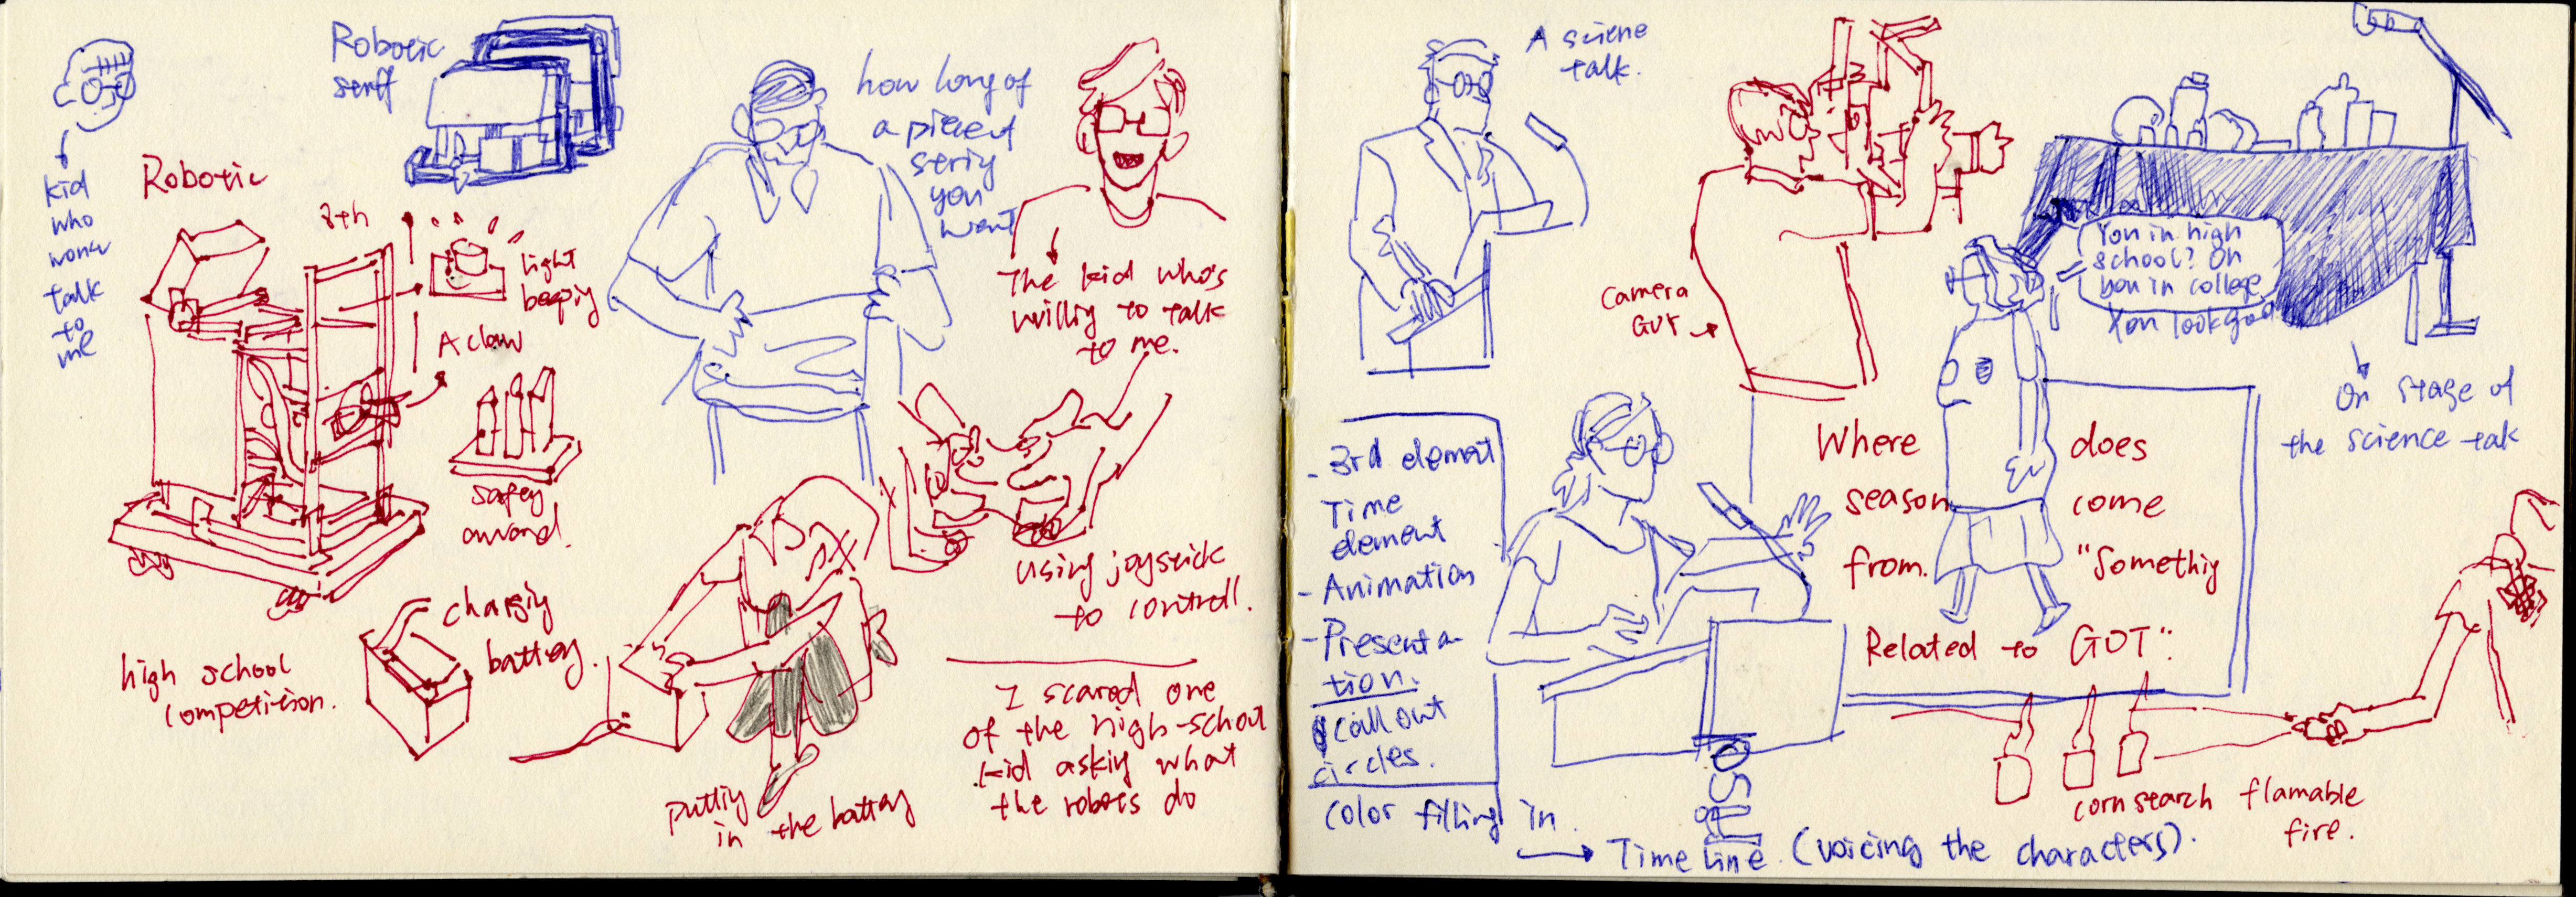 kid
who
wonw
talk
to
me
Robotic
serff
Robotic
8th
light
beepiy
A claw
safey
award.
high school
competition.
chargiy
battery.
how long of
a piecent
seriy
you
want
The kid who's
williy to talk
to me.
using joystick
to controll.
puttiy
in the battery
I scared one
of the high-school
kid askiy what
the robots do
A sciene
talk.
Camera
GUY
You in high
school? Oh
you in college
You look good
On stage of
the science talk
- 3rd element
Time
element
- Animation
- Presenta-
tion.
Call out
circles.
Color filling in.
OSU
Time line. (voicing the characters).
Where does
season come
from. "Somethig
Related to GOT":
corn search flamable
fire.